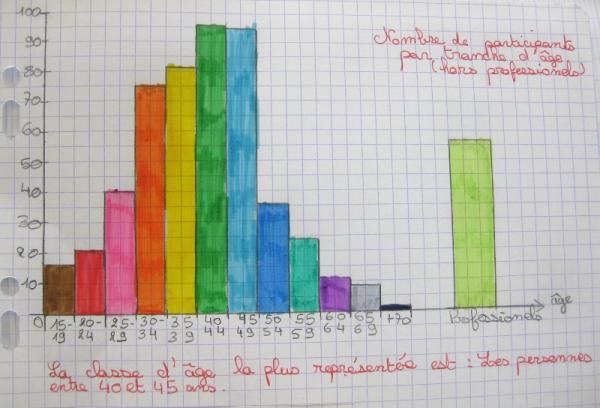 Nombre de participants
par tranche d'âge
(hors professionels)
100
90
80
70
60
50
40
30
20
10
0
15-19
20-24
25-29
30-34
35 39
40 44
45 49
50 54
55 59
60 64
65 69
+70
Professionels
âge
La classe d'âge la plus représentée est : Les personnes
entre 40 et 45 ans.